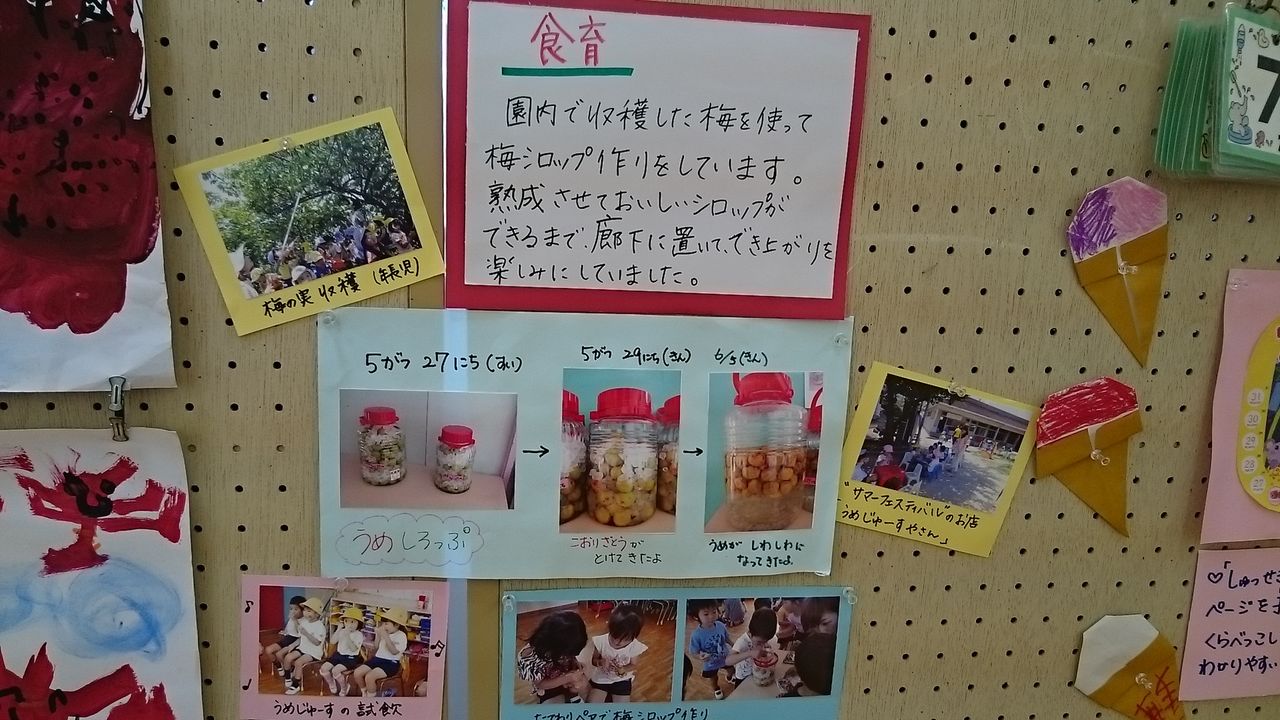 食育
園内で収穫した梅を使って
梅シロップ作りをしています。
熟成させておいしいシロップが
できるまで、廊下に置いて、でき上がりを
楽しみにしていました。
梅の実収穫（年長児）
5がつ 27にち(すい)
5がつ 29にち(きん)
6/5(きん)
うめしろっぷ
こおりざとうが
とけてきたよ
うめが しわしわに
なってきたよ
"サマーフェスティバル"のお店
「うめじゅーすやさん」
うめじゅーすの試飲
たてわりペアで梅シロップ作り
7
31
30
29
28
27
♡「しゅっせき
ページを
くらべっこし
わかりやすい